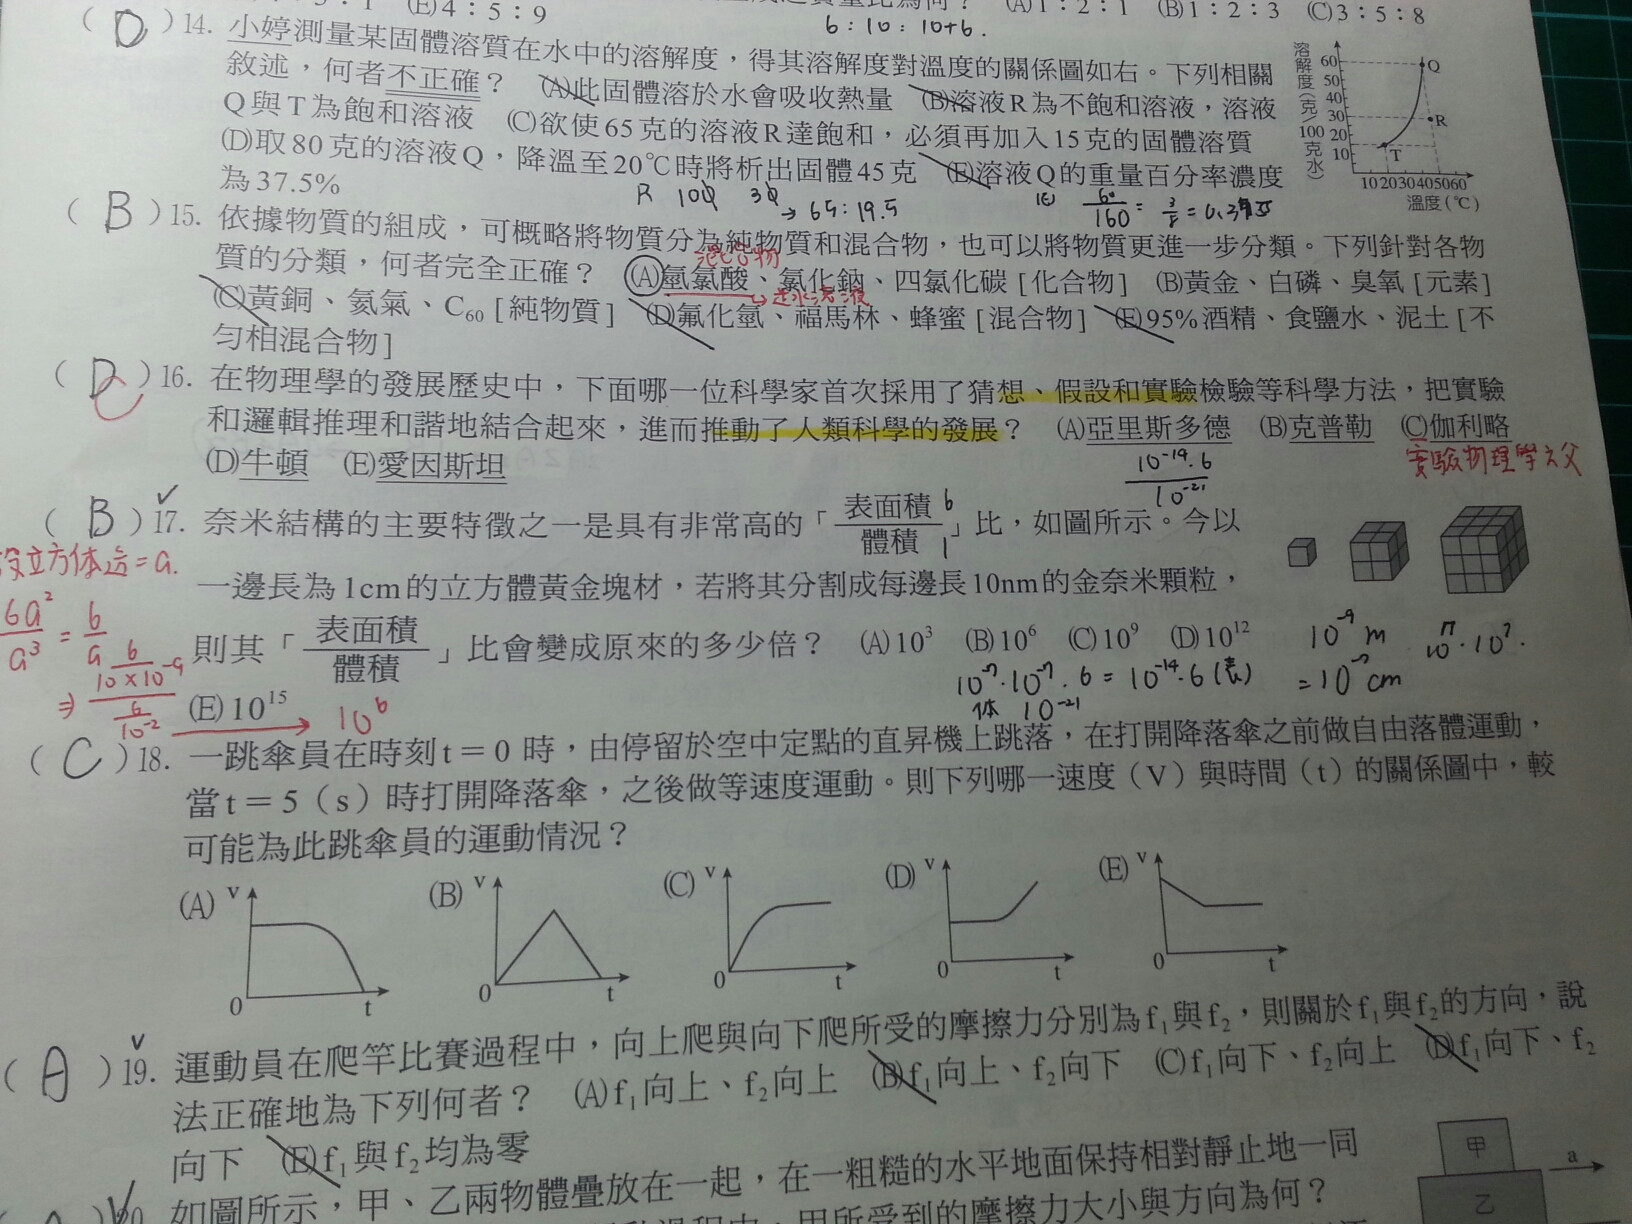 (E) 4：5：9
(A) 1：2：1 (B) 1：2：3 (C) 3：5：8
6 : 10 : 10+6.
( D ) 14. 小婷測量某固體溶質在水中的溶解度，得其溶解度對溫度的關係圖如右。下列相關
敘述，何者不正確？ (A)此固體溶於水會吸收熱量 (B)溶液R為不飽和溶液，溶液
Q與T為飽和溶液 (C)欲使65克的溶液R達飽和，必須再加入15克的固體溶質
(D)取80克的溶液Q，降溫至20℃時將析出固體45克 (E)溶液Q的重量百分率濃度
為37.5%
溶解度(克/100克水)
60
50
40
30
20
10
Q
R
T
10 20 30 40 50 60
溫度(℃)
R 100 30
→ 65 : 19.5
60/160 = 3/8 = 0.375
( B ) 15. 依據物質的組成，可概略將物質分為純物質和混合物，也可以將物質更進一步分類。下列針對各物
質的分類，何者完全正確？ (A)氫氯酸、氯化鈉、四氯化碳 [化合物] (B)黃金、白磷、臭氧 [元素]
混合物
水溶液
(C)黃銅、氨氣、C60 [純物質] (D)氟化氫、福馬林、蜂蜜 [混合物] (E)95%酒精、食鹽水、泥土 [不
勻相混合物]
( D ) 16. 在物理學的發展歷史中，下面哪一位科學家首次採用了猜想、假設和實驗檢驗等科學方法，把實驗
C
和邏輯推理和諧地結合起來，進而推動了人類科學的發展？ (A)亞里斯多德 (B)克普勒 (C)伽利略
(D)牛頓 (E)愛因斯坦
實驗物理學之父
10⁻¹⁴·6
10⁻²¹
( B ) 17. 奈米結構的主要特徵之一是具有非常高的「表面積/體積」比，如圖所示。今以
6
1
設立方体边=a.
一邊長為1cm的立方體黃金塊材，若將其分割成每邊長10nm的金奈米顆粒，
6a²/a³ = 6/a
則其「表面積/體積」比會變成原來的多少倍？ (A) 10³ (B) 10⁶ (C) 10⁹ (D) 10¹²
(E) 10¹⁵
⇒ 6/10×10⁻⁹
6/10⁻²
10⁶
10⁻⁹ m
= 10⁻⁷ cm
10⁻⁷·10⁻⁷·6 = 10⁻¹⁴·6 (表)
体 10⁻²¹
( C ) 18. 一跳傘員在時刻t＝0 時，由停留於空中定點的直昇機上跳落，在打開降落傘之前做自由落體運動，
當t＝5（s）時打開降落傘，之後做等速度運動。則下列哪一速度（V）與時間（t）的關係圖中，較
可能為此跳傘員的運動情況？
(A) v 0 t
(B) v 0 t
(C) v 0 t
(D) v 0 t
(E) v 0 t
( A ) 19. 運動員在爬竿比賽過程中，向上爬與向下爬所受的摩擦力分別為f₁與f₂，則關於f₁與f₂的方向，說
法正確地為下列何者？ (A) f₁向上、f₂向上 (B) f₁向上、f₂向下 (C) f₁向下、f₂向上 (D) f₁向下、f₂
向下 (E) f₁與f₂均為零
20. 如圖所示，甲、乙兩物體疊放在一起，在一粗糙的水平地面保持相對靜止地一同
甲所受到的摩擦力大小與方向為何？
甲
乙
a